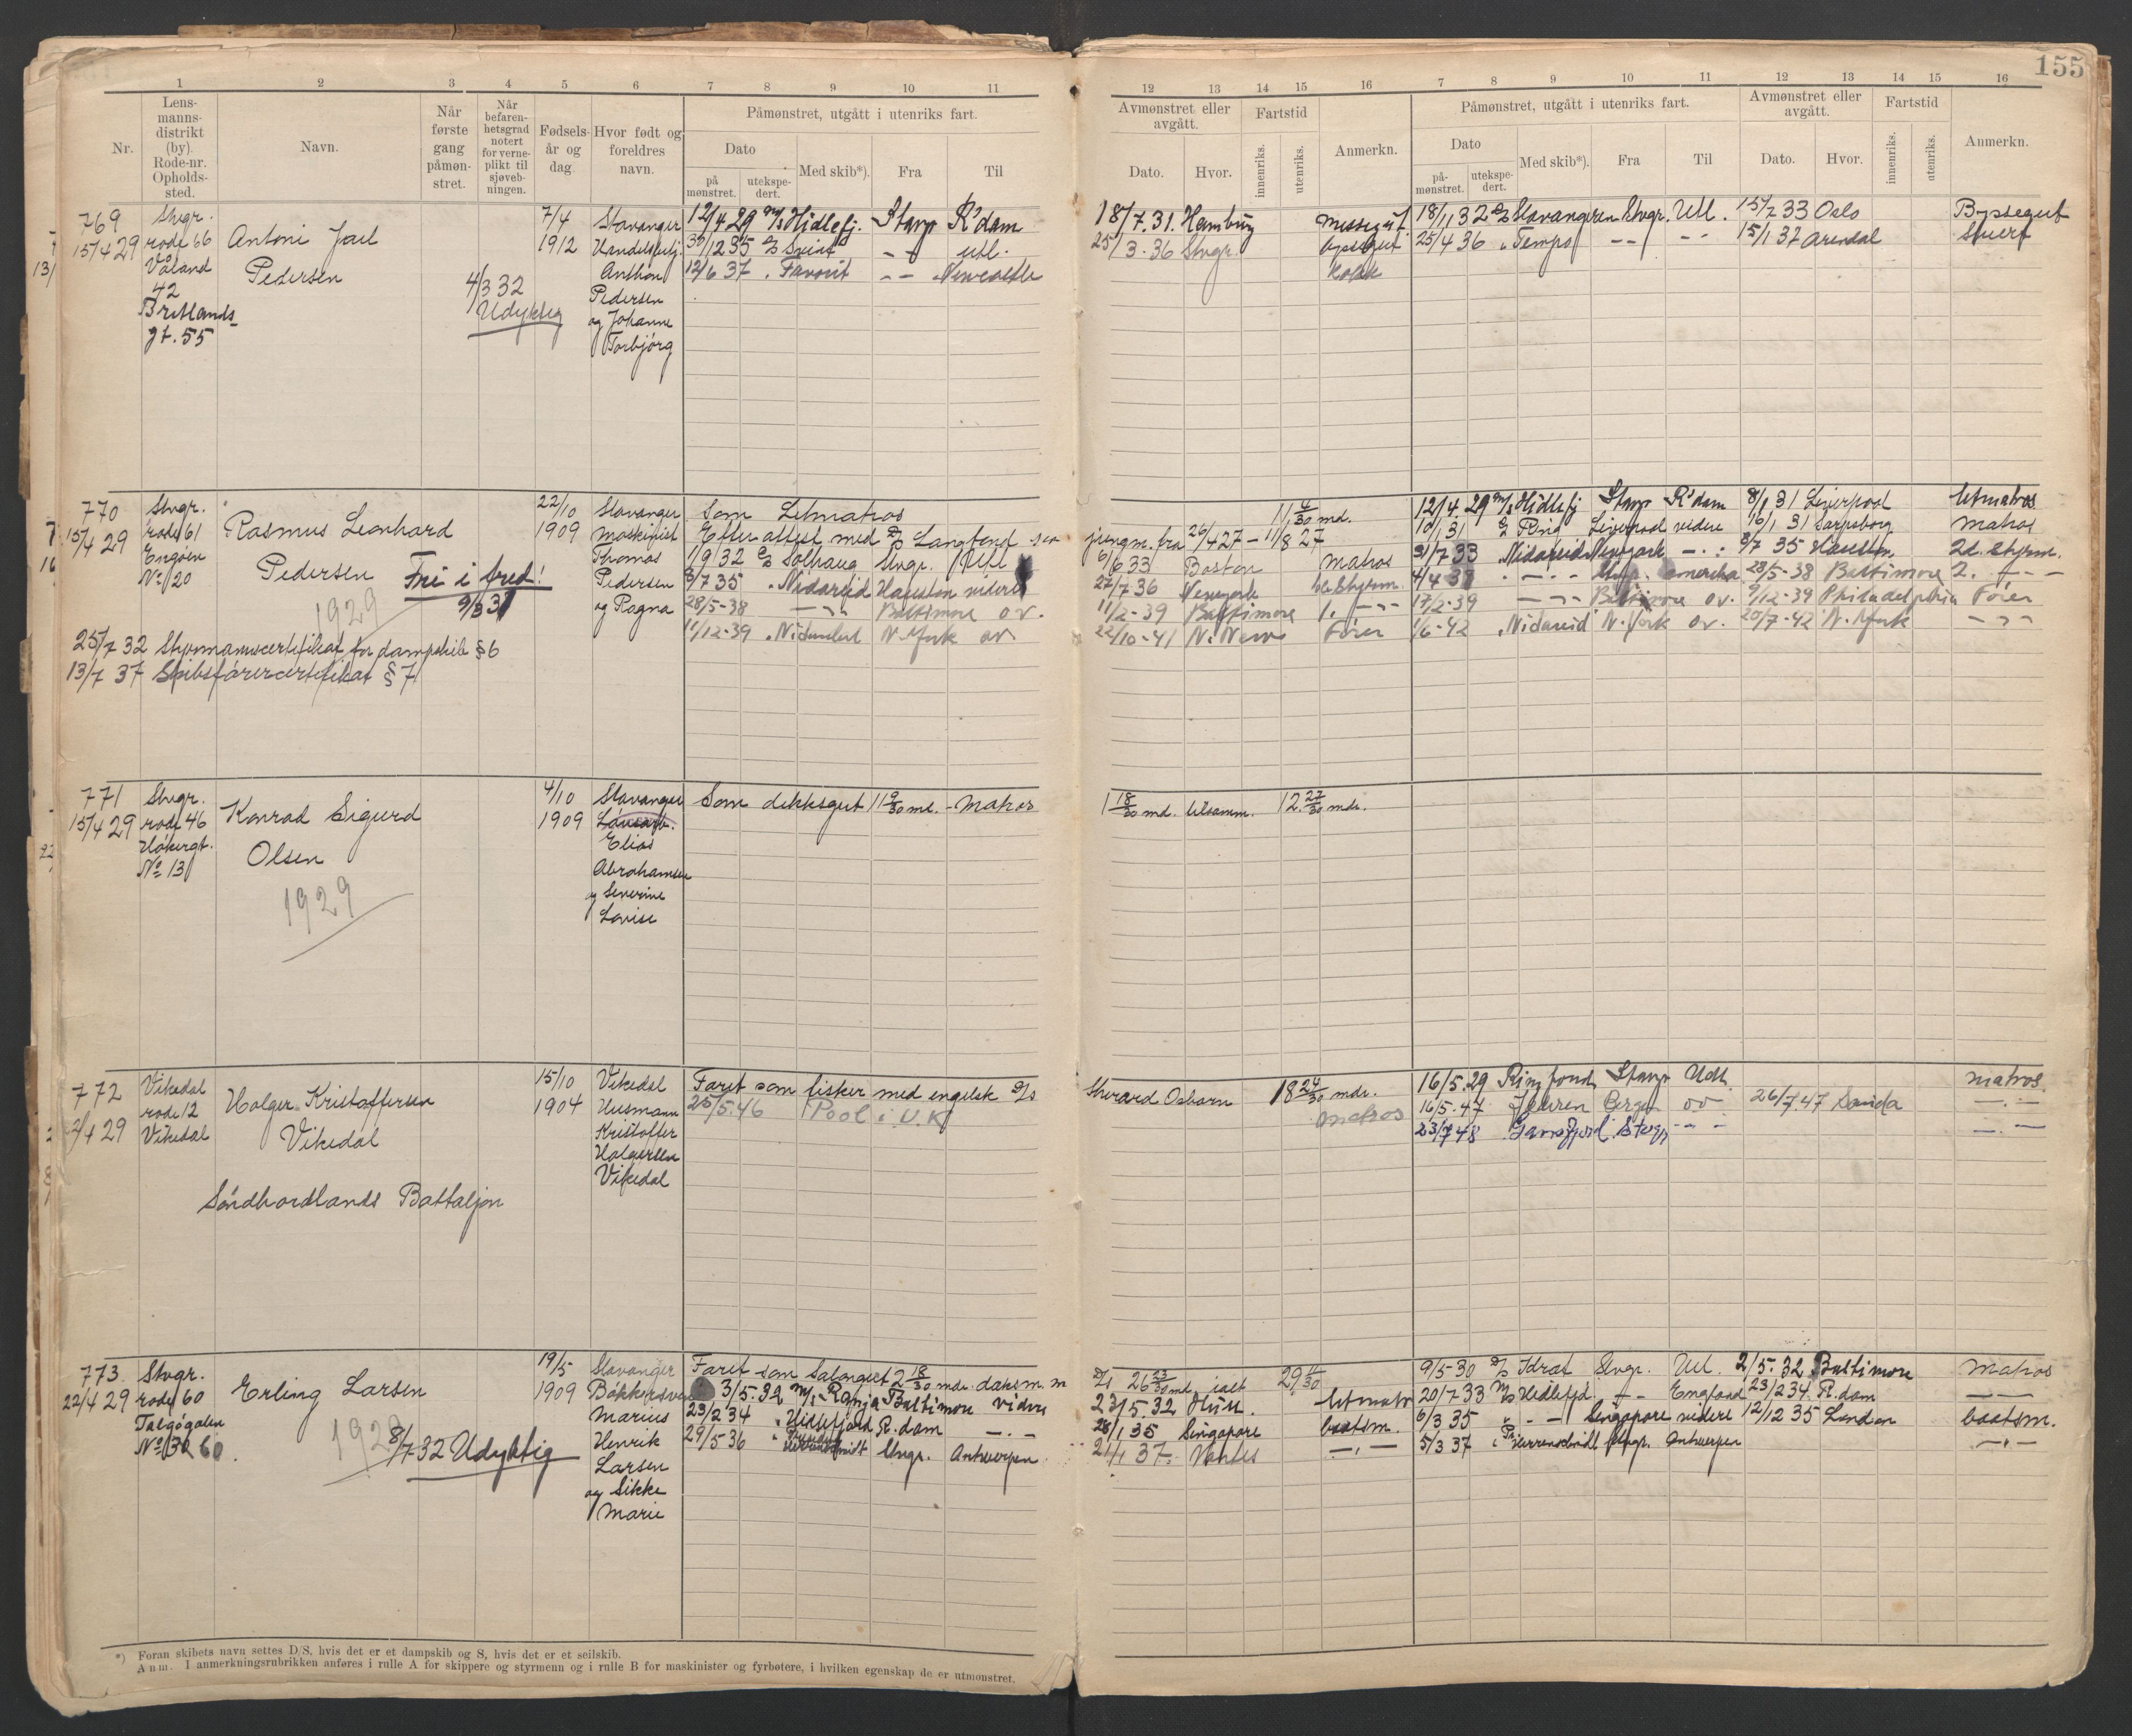 155
1 2 3 4 5 6 7 8 9 10 11
Nr.
Lens-
manns-
distrikt
(by).
Rode-nr.
Opholds-
sted.
Navn.
Når
første
gang
påmøn-
stret.
Når
befaren-
hetsgrad
notert
for verne-
plikt til
sjøveb-
ningen.
Fødsels-
år og
dag
Hvor født og
foreldres
navn.
Påmønstret, utgått i utenriks fart.
Dato
på
mønstret.
utekspe-
dert.
Med skib*).
Fra
Til
12 13 14 15 16 7 8 9 10 11 12 13 14 15 16
Avmønstret eller
avgått.
Dato.
Hvor.
Fartstid
innenriks.
utenriks.
Anmerkn.
Påmønstret, utgått i utenriks fart.
Dato
på-
mønstret.
utekspe-
dert.
Med skib*).
Fra
Til
Avmønstret eller
avgått.
Dato.
Hvor.
Fartstid
innenriks.
utenriks.
Anmerkn.
769
15/4 29
Stvgr.
rode 66
Våland
42
Antoni Jael
Pedersen
4/3 32
Udyktig
7/4
1912
Stavanger
Anthon
Pedersen
og Johanne
Torbjörg
gt. 55
12/4 29 M/S Hidlefj. Stavgr R'dam
30/12 35 D/S Sveint - - utl.
12/6 37 " Favorit - - Newcastle
18/7.31. Hamburg Messegut
25/3.36 Stvgr.
Kokk
18/11 32 D/S Stavangeren Stvgr. Utl. 15/7 33 Oslo Byssegut
25/4 36 " Temps - - - - 15/1 37 Arendal Stuert
770
15/4 29
Stvgr.
rode 61
Engöen
No 20
Rasmus Leonhard
Pedersen
Fri i fred!
1929
22/10
1909
Stavanger
maskinist
Thomas
Pedersen
og Ragna
25/7 32 Styrmannscertifikat for dampskib § 6
13/7 37 Skibsförercertifikat § 7
Som Letmatros
Efter attest med D/S Langfond som
1/9 32 D/S Solhaug Stvgr. Utl
3/7 35 " Nidareid Houston videre
28/5-38 Baltimore o.v.
11/12-39 N. York ov
jungm. fra 26/4 27 - 11/8 27
6/6 33 Boston Matros
27/7 36 Newyork
11/2-39 Baltimore 1.
22/10-41 N. News Förer
12/4 29 M/S Hidlefj Stavgr R'dam 8/1 31 Liverpool letmatros
10/1 31 Liverpool videre 16/1 31 Sarpsborg matros
31/7 33 Nidareid Newyork 3/7 35 Houston 2d. Styrm.
Stvgr. amerika 28/5-38 Baltimore 2.
17/2-39 Baltimore o.v. 9/12-39 Philadelphia Förer
1/6-42 " Nidareid N. York o.v. 20/7-42 N. York
771
15/4 29
Stvgr.
rode 46
Hökergt.
No 13
Konrad Sigurd
Olsen
1929
4/10
1909
Stavanger
Lausarb.
Elias
Abrahamsen
og Severine
Lovise
Som dekksgut 11 9/30 md. - Matros
1 18/30 md. tilsamm. 12. 27/30 mdr.
772
2/4 29
Vikedal
rode 12
Vikedal
Holger Kristoffersen
Vikedal
Söndhordlands Bataljon
15/10
1904
Vikedal
Husmann
Kristoffer
Holgersen
Vikedal
Faret som fisker med engelsk D/S
25/5.46 Pool i U.K
Sherard Osborn 18 24/30 mdr.
Matros
16/5.29 Ringfond Stavgr Utl. matros.
16/5.47 Bergen o.v. 26/7 47 Sauda
23/7 48
773.
22/4 29
Stvgr.
rode 60
No 60
Erling Larsen
8/7 32 Udyktig
19/5
1909
Stavanger
Marius
Henrik
Larsen
og Sikke
Marie
Faret som Salongut 2 18/30 mdr. daksm. m
3/5.32 M/S Ranja Baltimore videre
23/2 34 " Hidlefjord R.dam
29/5 36 Stvgr. Antwerpen
D/S 26 23/30 md. ialt 29 11/30
23/5.32 Hull. letmatr
26/1 35 Singapore baatsm.
21/1 37. Nantes
9/5-30 D/S Idrat Stvgr. Utl. 2/5.32 Baltimore Matros
20/7 33 M/S Hidlefjd. England 23/2 34. R.dam
6/3 35 Singapore videre 12/12 35 London baatsm.
5/3 37 Stvgr. Antwerpen
*) Foran skibets navn settes D/S, hvis det er et dampskib og S, hvis det er et seilskib.
Anm. I anmerkningsrubrikken anføres i rulle A for skippere og styrmenn og i rulle B for maskinister og fyrbøtere, i hvilken egenskap de er utmønstret.